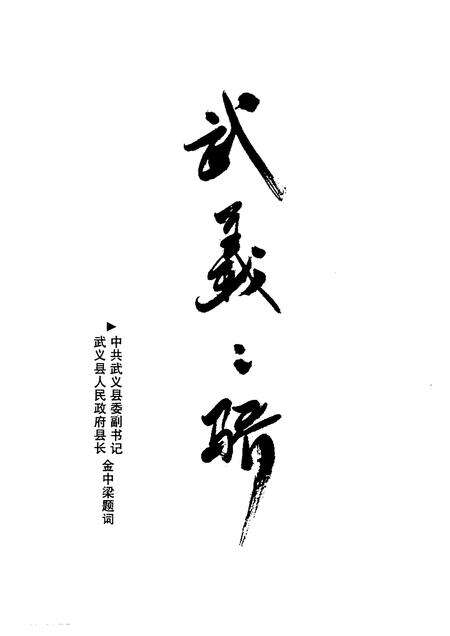 武義之骄
▶
中共武义县委副书记
武义县人民政府县长
金中梁题词